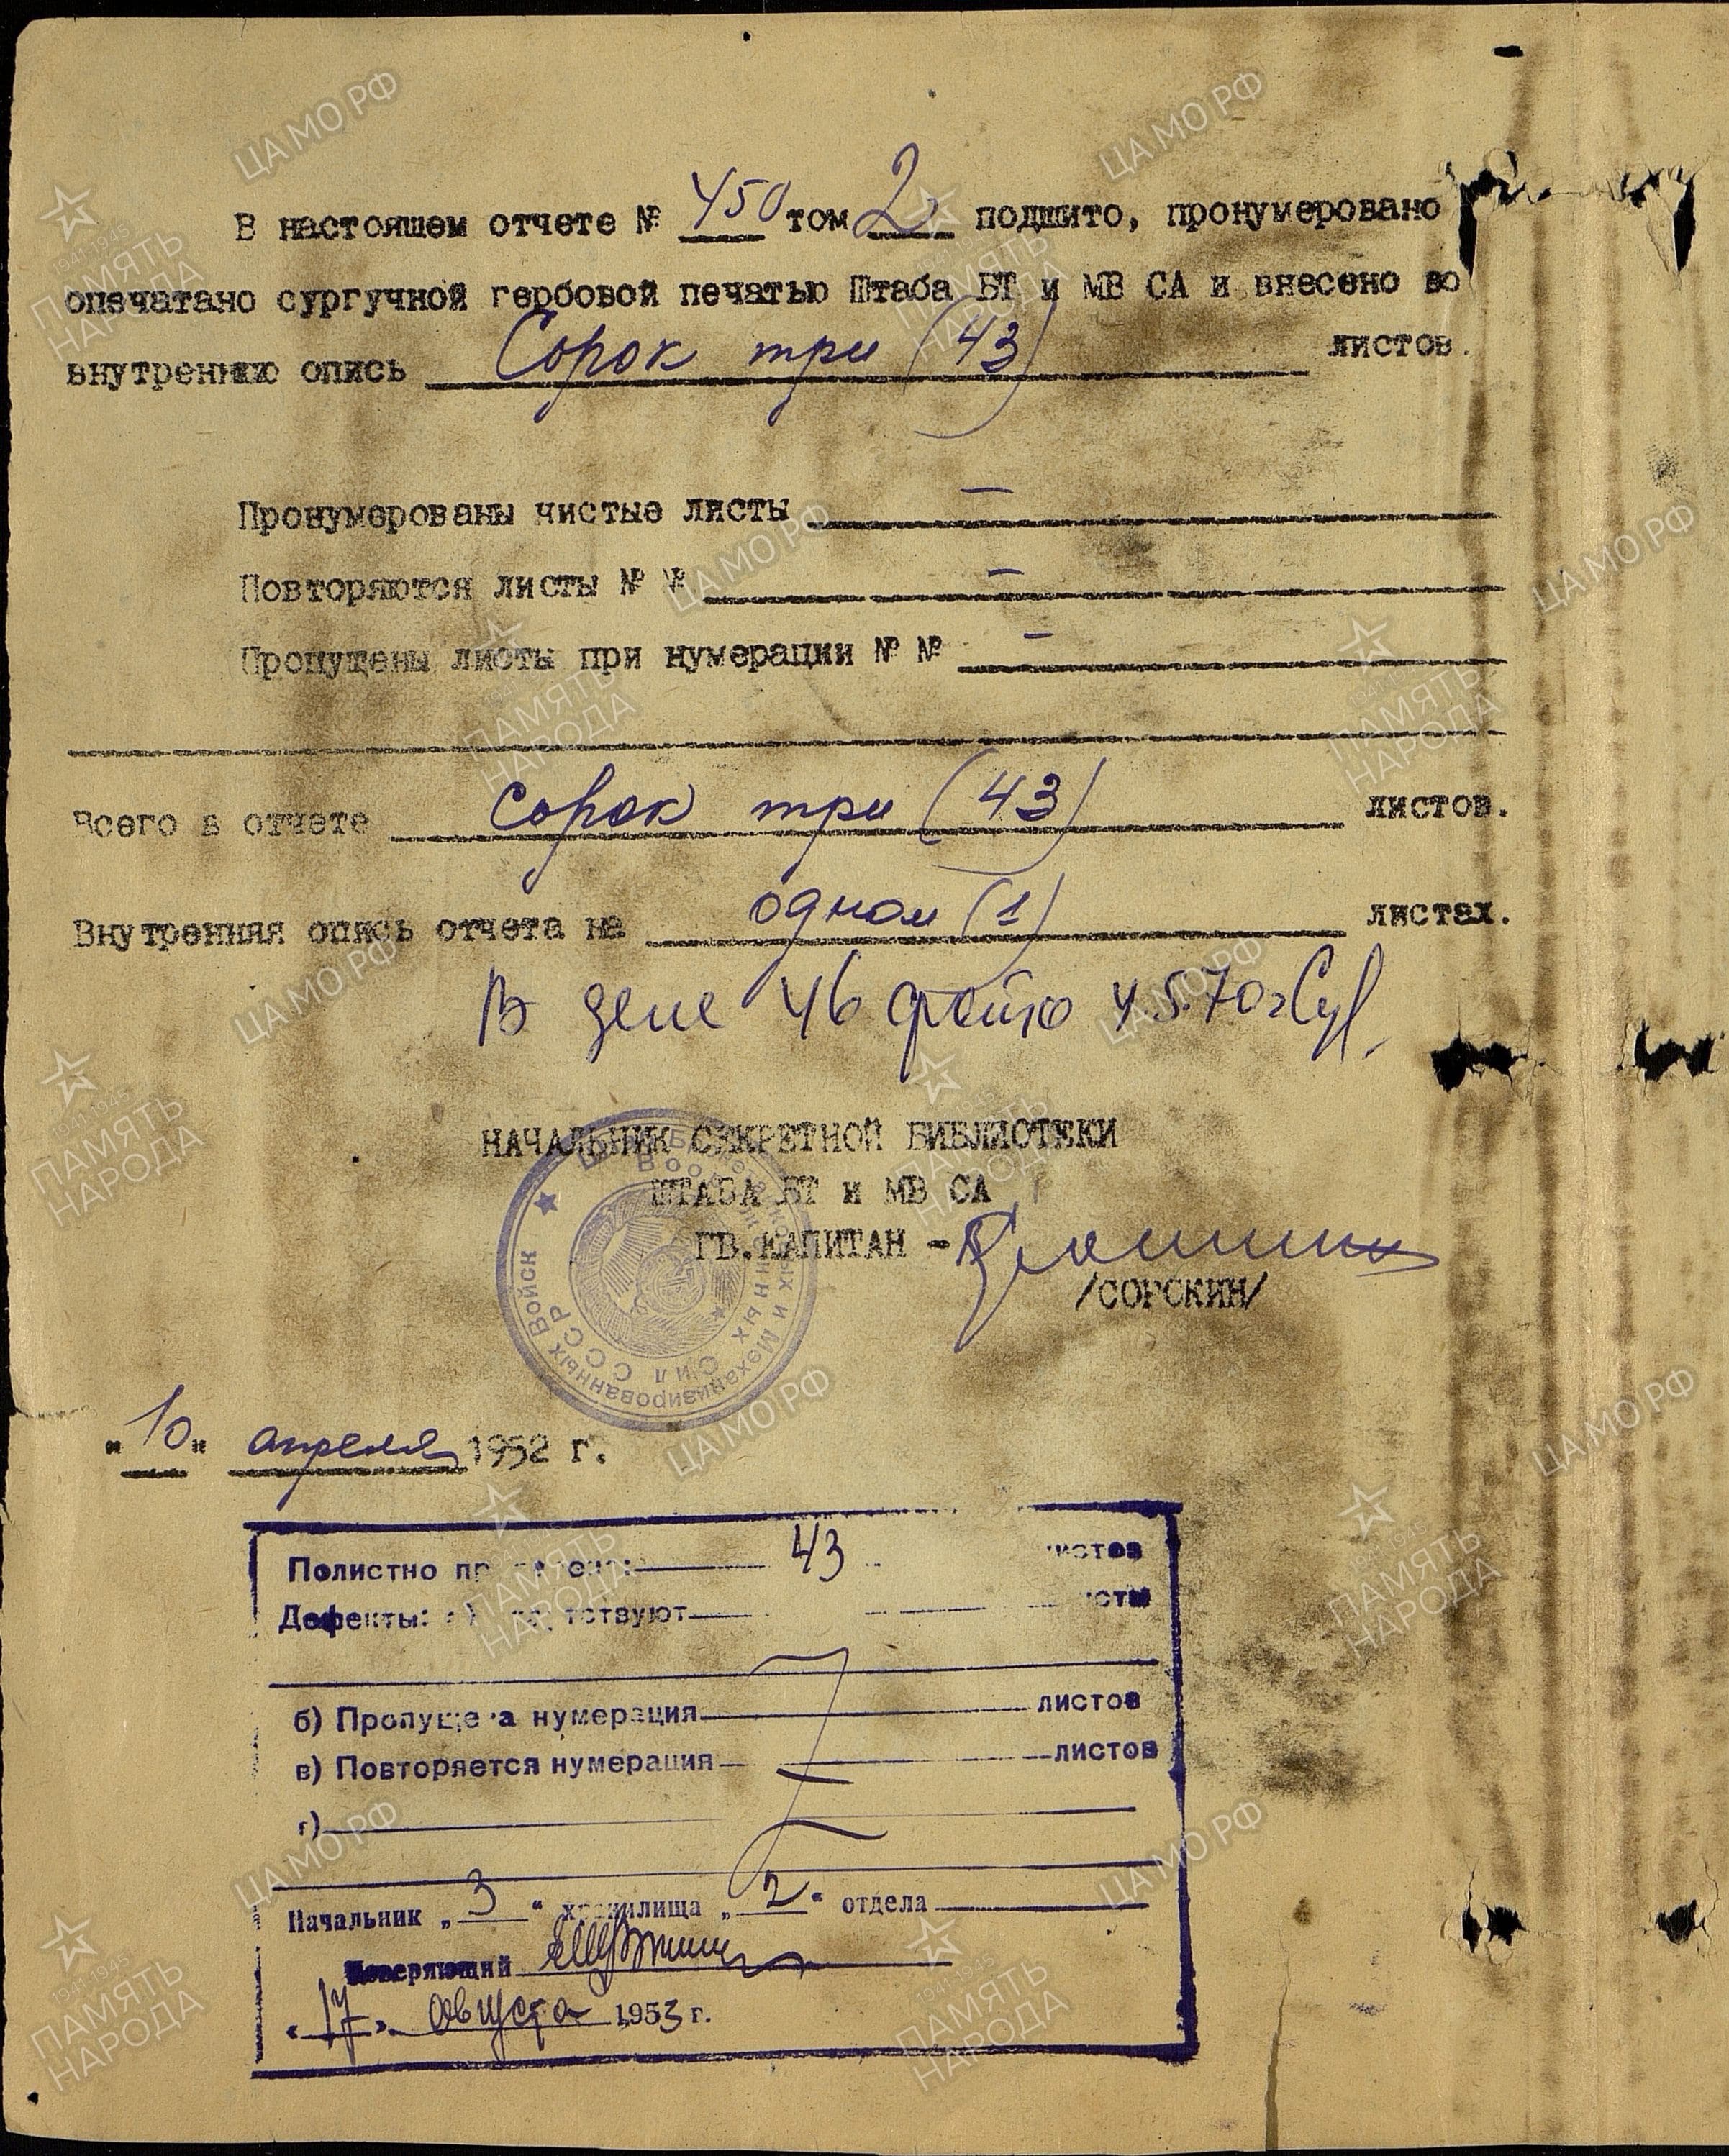 В настоящем отчете № 450 том 2 подшито, пронумеровано
опечатано сургучной гербовой печатью Штаба БТ и МВ СА и внесено во
внутреннюю опись Сорок три (43) листов.
Пронумерованы чистые листы —
Повторяются листы № № —
Пропущены листы при нумерации № № —
Всего в отчете Сорок три (43) листов.
Внутренняя опись отчета на одном (1) листах.
В деле 46 фото 4.5.70г
НАЧАЛЬНИК СЕКРЕТНОЙ БИБЛИОТЕКИ
ШТАБА БТ и МВ СА
ГВ. КАПИТАН -
/СОРСКИН/
и Механизированных Войск
Сил СССР
"10" апреля 1952 г.
Полистно 43 листов
Дефекты: листы
б) Пропущена нумерация листов
в) Повторяется нумерация листов
г)
Начальник „3“ хранилища „2“ отдела
Поверяющий
«17» августа 1953 г.
ЦАМО РФ
1941-1945
ПАМЯТЬ
НАРОДА